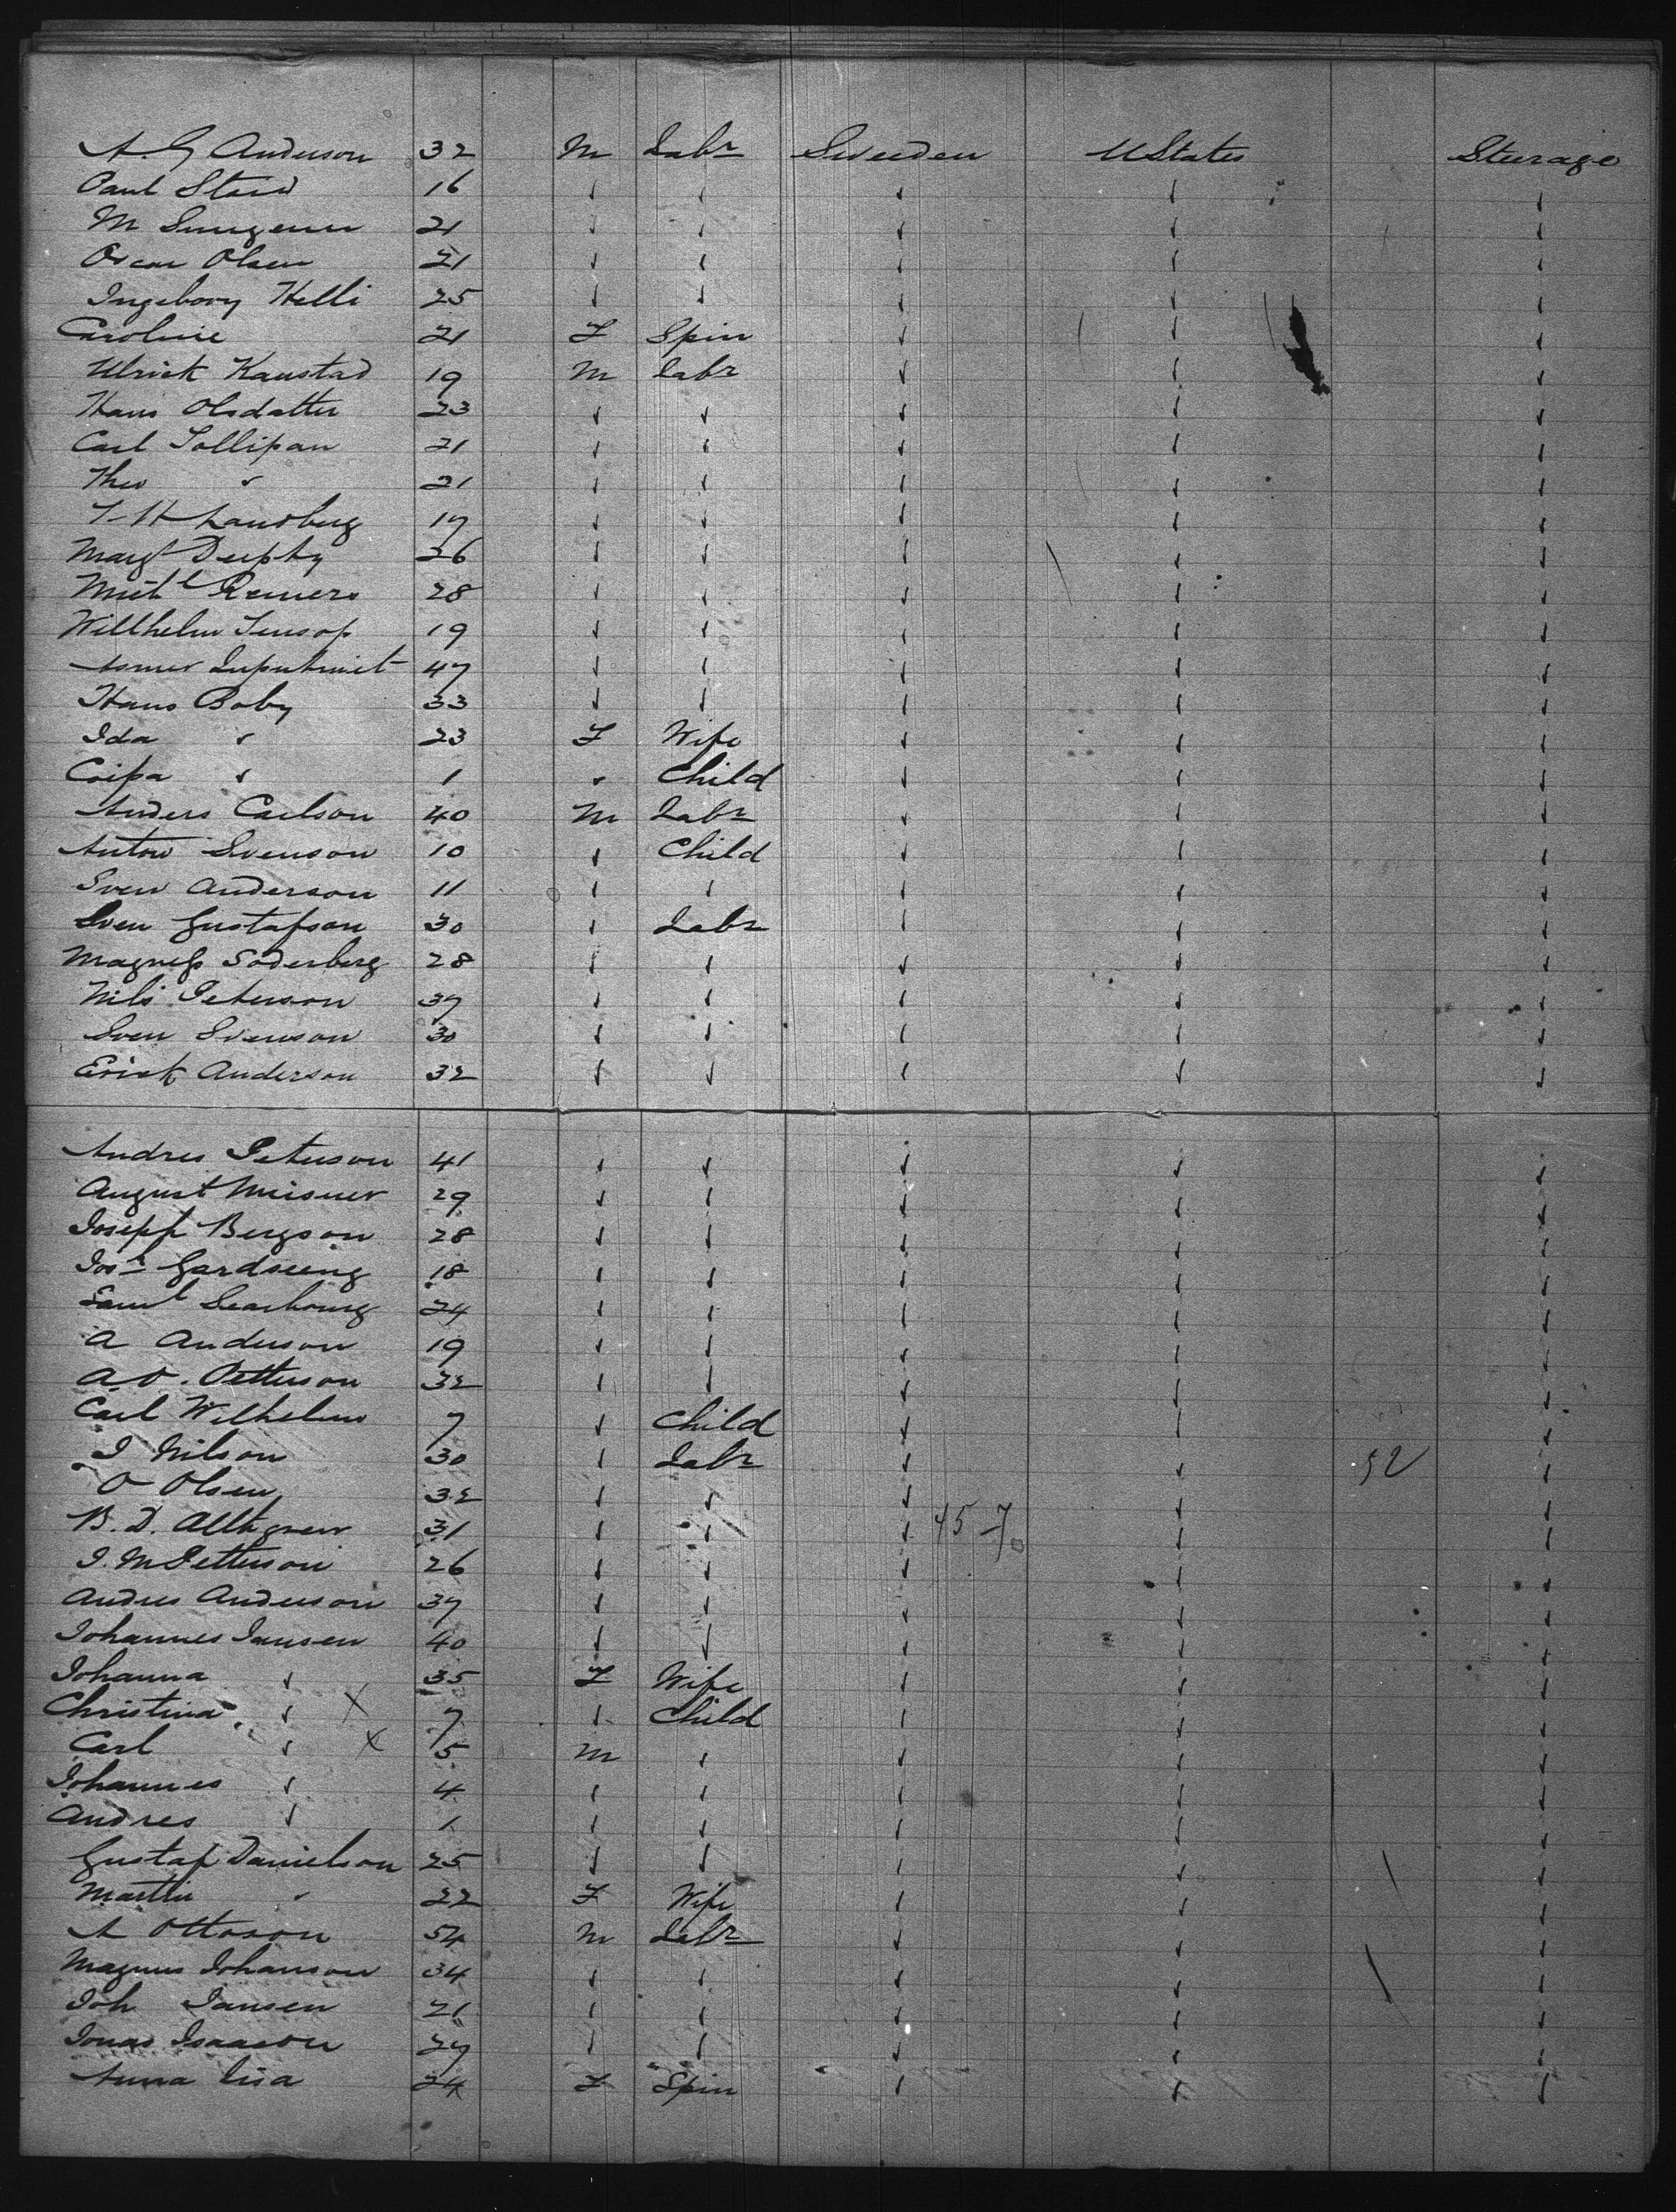 A. G Anderson 32 M Labr Sweeden UStates Steerage
Paul Steid 16 " " " " "
M 21 " " " " "
Oscar Olsen 21 " " " " "
Ingeborg Helli 25 " " " " "
Caroline 21 F Spin " " "
Ulrick Kaustad 19 M Labr " " "
Hans Olsdatter 23 " " " " "
Carl Tollipan 21 " " " " "
Theo " 21 " " " " "
Landberg 17 " " " " "
Margt 26 " " " " "
Michl Remers 28 " " " " "
Willhelm Jensop 19 " " " " "
47 " " " " "
Hans Boby 33 " " " " "
Ida " 23 F Wife " " "
" 1 " Child " " "
Anders Carlson 40 M Labr " " "
Anton Svenson 10 " Child " " "
Sven Anderson 11 " " " " "
Sven Gustafson 30 " Labr " " "
Magness Soderberg 28 " " " " "
Nils Peterson 37 " " " " "
Sven Svenson 30 " " " " "
Erick Anderson 32 " " " " "
Andres Peterson 41 " " " " "
August Meisner 29 " " " " "
Joseph Bergson 28 " " " " "
Josh Gardseing 18 " " " " "
Saml Searbourg 24 " " " " "
A Anderson 19 " " " " "
A. O. Petterson 32 " " " " "
Carl Wilhelm 7 " Child " " "
J Nilson 30 " Labr " " 52 "
O Olsen 32 " " " " "
B. D. Allhgren 31 " " " 45-7 " "
J. M Petterson 26 " " " " "
Andres Anderson 37 " " " " "
Johannes Jansen 40 " " " " "
Johanna " 35 F Wife " " "
Christina " X 7 " Child " " "
Carl " X 5 M " " " "
Johannes " 4 " " " " "
Andres " 1 " " " " "
Gustaf Danielson 25 " " " " "
Martin " 22 F Wife " " "
A Ottoson 54 M Labr " " "
Magnus Johanson 34 " " " " "
Joh Jansen 21 " " " " "
Jonas Isaacson 27 " " " " "
Anna Lisa 24 F Spin " " "